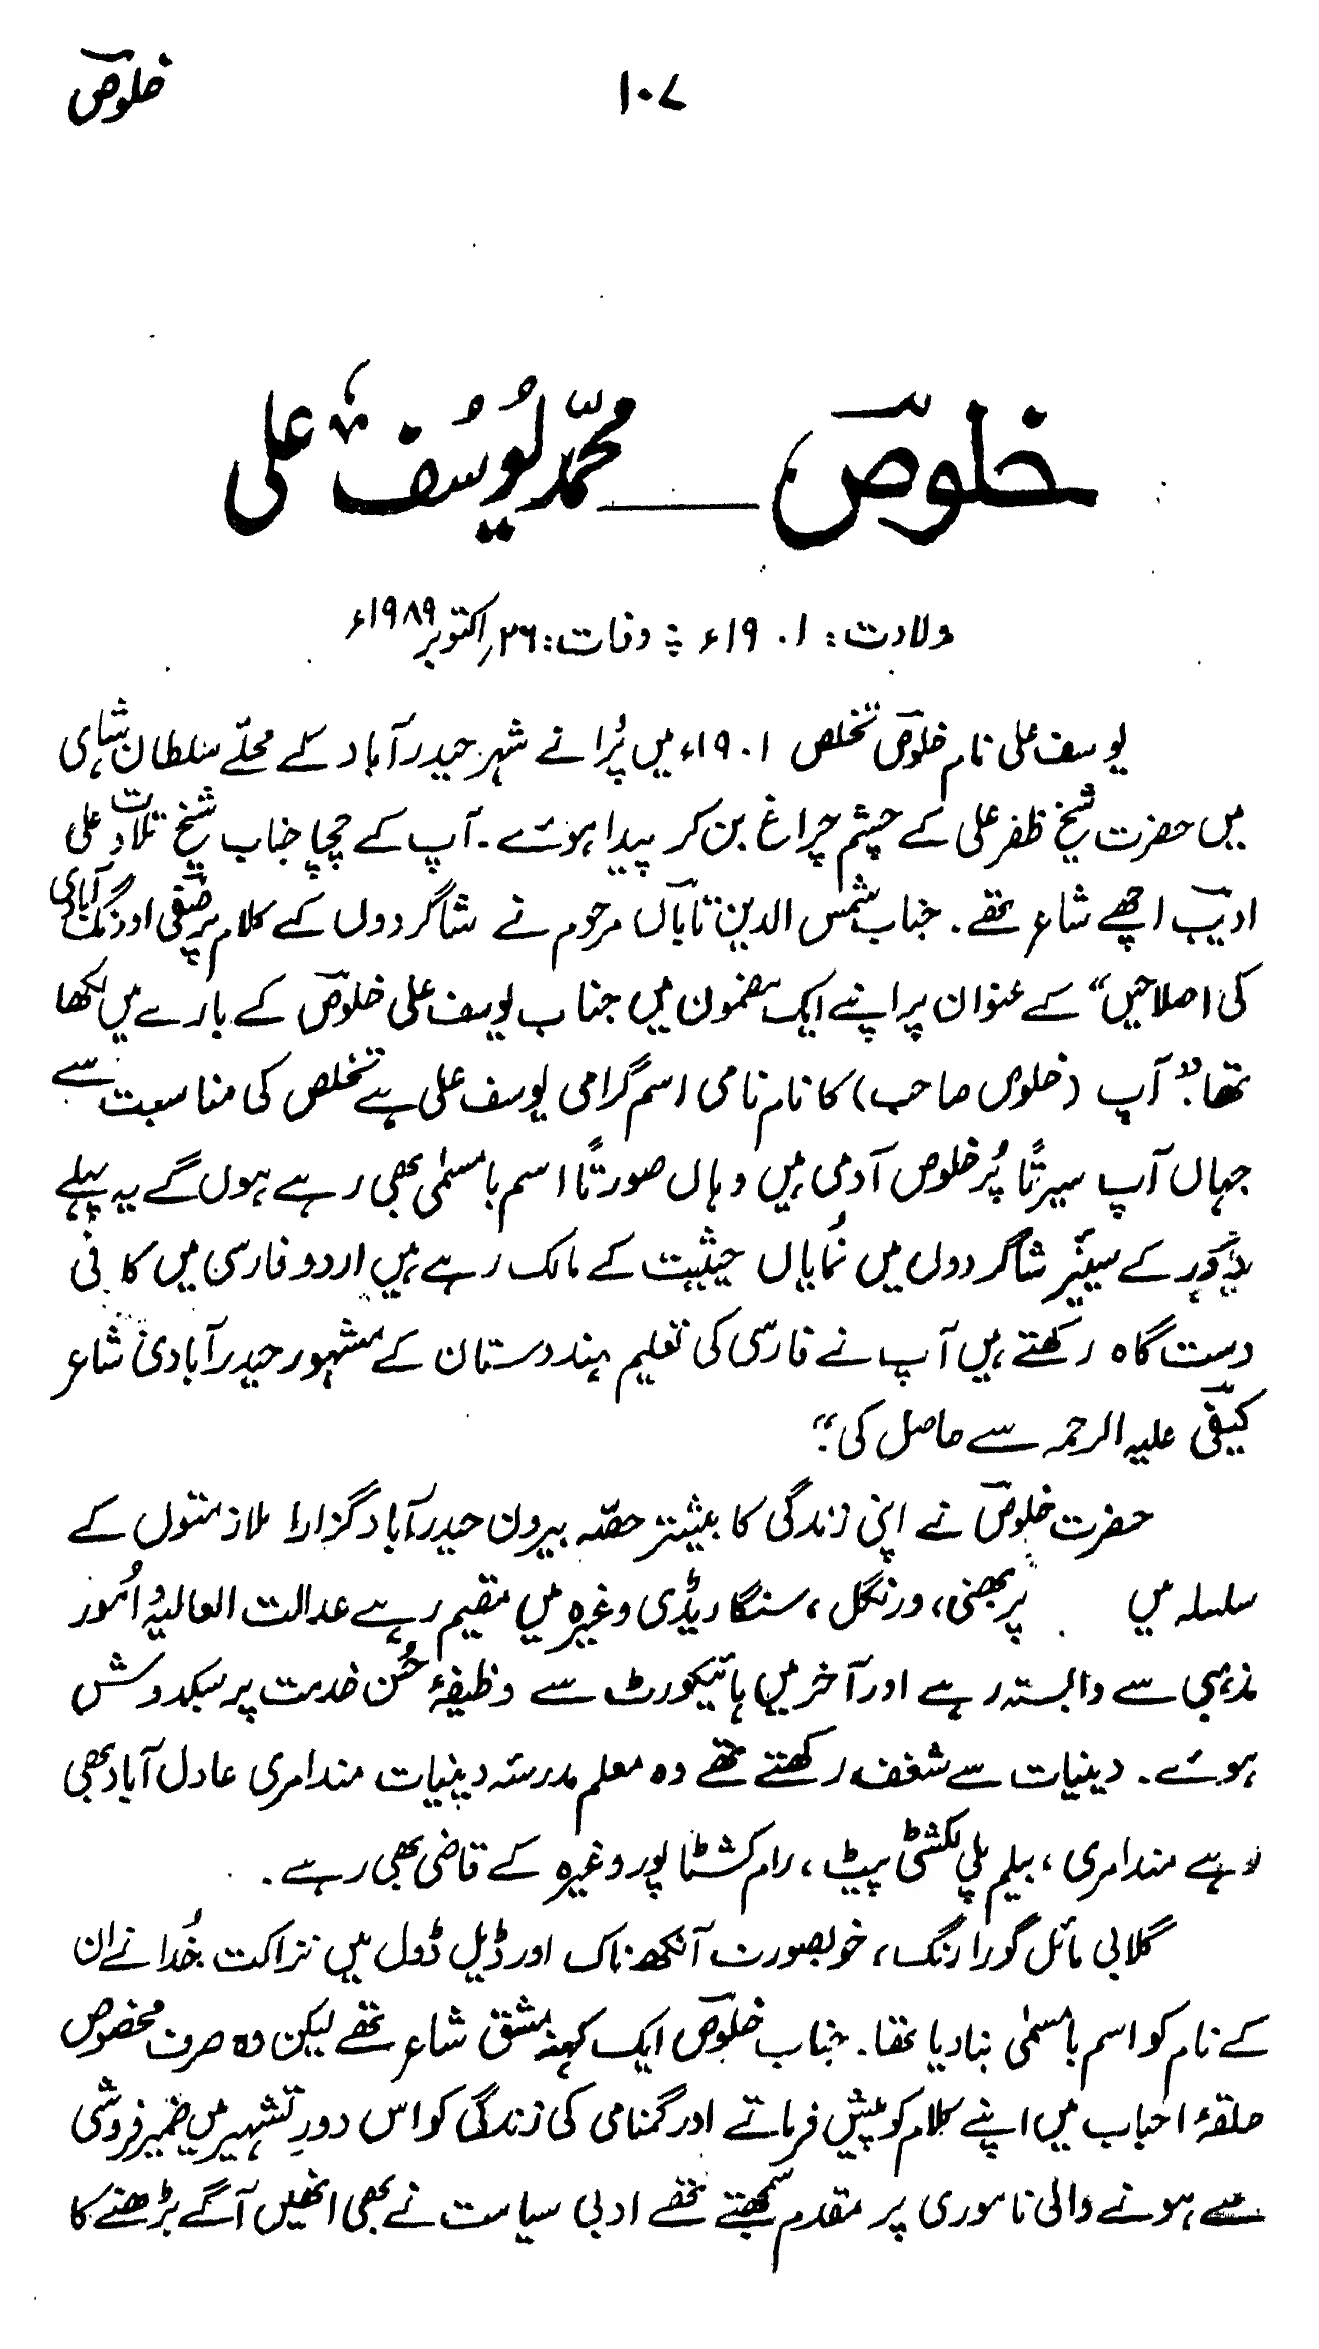 ۱۰۷
خلوصؔ
خلوصؔ ــــ محمّد یوسُف علی
ولادت: ۱۹۰۱ء ؞ وفات: ۲۶؍اکتوبر ۱۹۸۹ء
یوسف علی نام خلوصؔ تخلص ۱۹۰۱ء میں پُرانے شہر حیدرآباد کے محلّے سلطان شاہی
میں حضرت شیخ ظفر علی کے چشم چراغ بن کر پیدا ہوئے۔ آپ کے چچا جناب شیخ تلاوت علی
ادیبؔ اچھے شاعر تھے۔ جناب شمس الدین تاباںؔ مرحوم نے شاگردوں کے کلام پر صفیؔ اورنگ آبادی
کی اصلاحیں“ کے عنوان پر اپنے ایک مضمون میں جناب یوسف علی خلوصؔ کے بارے میں لکھا
تھا: ”آپ (خلوص صاحب) کا نام نامی اسم گرامی یوسف علی ہے تخلص کی مناسبت سے
جہاں آپ سیرتاً پُرخلوص آدمی ہیں وہاں صورتاً اسم بامسمیٰ بھی رہے ہوں گے یہ پہلے
دَور کے سینیَر شاگردوں میں نُمایاں حیثیت کے مالک رہے ہیں اردو فارسی میں کافی
دست گاہ رکھتے ہیں آپ نے فارسی کی تعلیم ہندوستان کے مشہور حیدرآبادی شاعر
کیفیؔ علیہ الرحمہ سے حاصل کی۔“
حضرت خلوصؔ نے اپنی زندگی کا بیشتر حصّہ بیرون حیدرآباد گزارا ملازمتوں کے
سلسلہ میں پربھنی، ورنگل، سنگاریڈی وغیرہ میں مقیم رہے عدالت العالیہ اُمور
مذہبی سے وابستہ رہے اور آخر میں ہائیکورٹ سے وظیفۂ حُسن خدمت پر سبکدوش
ہوئے۔ دینیات سے شغف رکھتے تھے وہ معلم مدرسہ دینیات مندامری عادل آباد بھی
رہے مندامری، بیلم پلی لکشٹی پیٹ، رام کشٹا پور وغیرہ کے قاضی بھی رہے۔
گلابی مائل گورا رنگ، خوبصورت آنکھ ناک اور ڈیل ڈول میں نزاکت خُدا نے ان
کے نام کو اسم بامسمیٰ بنادیا تھا۔ جناب خلوصؔ ایک کہنہ مشق شاعر تھے لیکن وہ صرف مخصوص
حلقۂ احباب میں اپنے کلام کو پیش فرماتے اور گمنامی کی زندگی کو اس دورِ تشہیر میں ضمیر فروشی
سے ہونے والی ناموری پر مقدم سمجھتے تھے ادبی سیاست نے بھی انھیں آگے بڑھنے کا